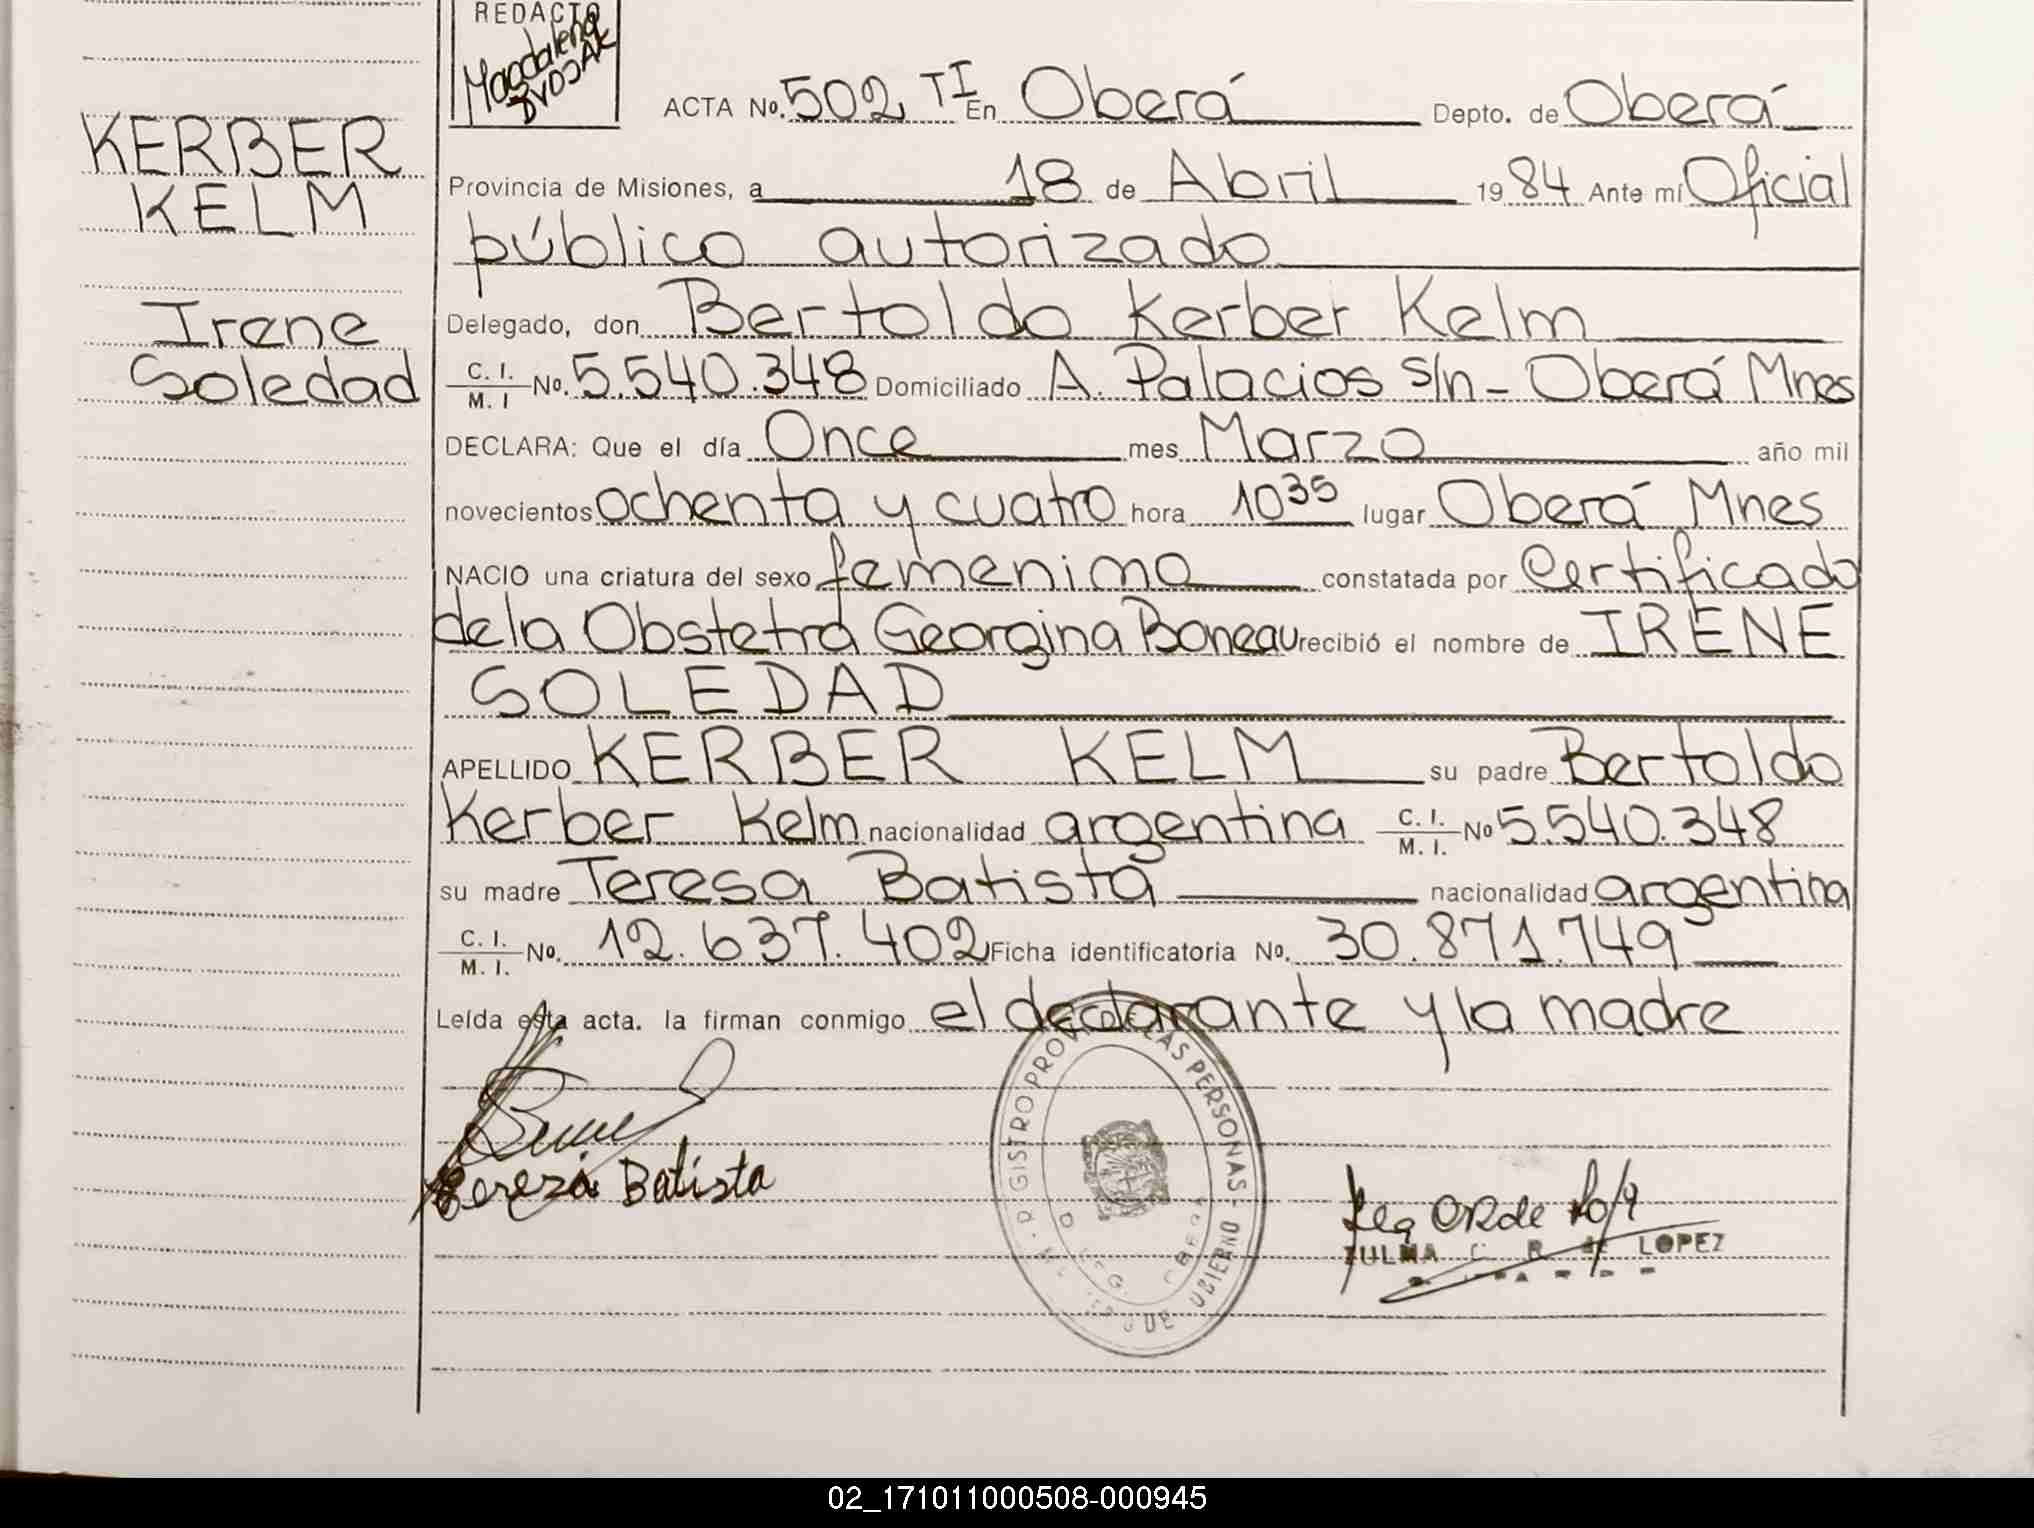 REDACTO
Magdalena
DVOJAK
KERBER
KELM
Irene
Soledad
ACTA No. 502 TI En Oberá Depto. de Oberá
Provincia de Misiones, a 18 de Abril 1984 Ante mí Oficial
público autorizado
Delegado, don Bertoldo Kerber Kelm
C. I. / M. I No. 5.540.348 Domiciliado A. Palacios s/n - Oberá Mnes
DECLARA: Que el día Once mes Marzo año mil
novecientos ochenta y cuatro hora 10 35 lugar Oberá Mnes
NACIO una criatura del sexo femenino constatada por Certificado
de la Obstetra Georgina Boneau recibió el nombre de IRENE
SOLEDAD
APELLIDO KERBER KELM su padre Bertoldo
Kerber Kelm nacionalidad argentina C. I. / M. I. No 5.540.348
su madre Teresa Batista nacionalidad argentina
C. I. / M. I. No. 12.637.402 Ficha identificatoria No. 30.871.749
Leída esta acta. la firman conmigo el declarante y la madre
Tereza Batista
LAS PERSONAS -
ZULMA C. R. de LOPEZ
02_171011000508-000945